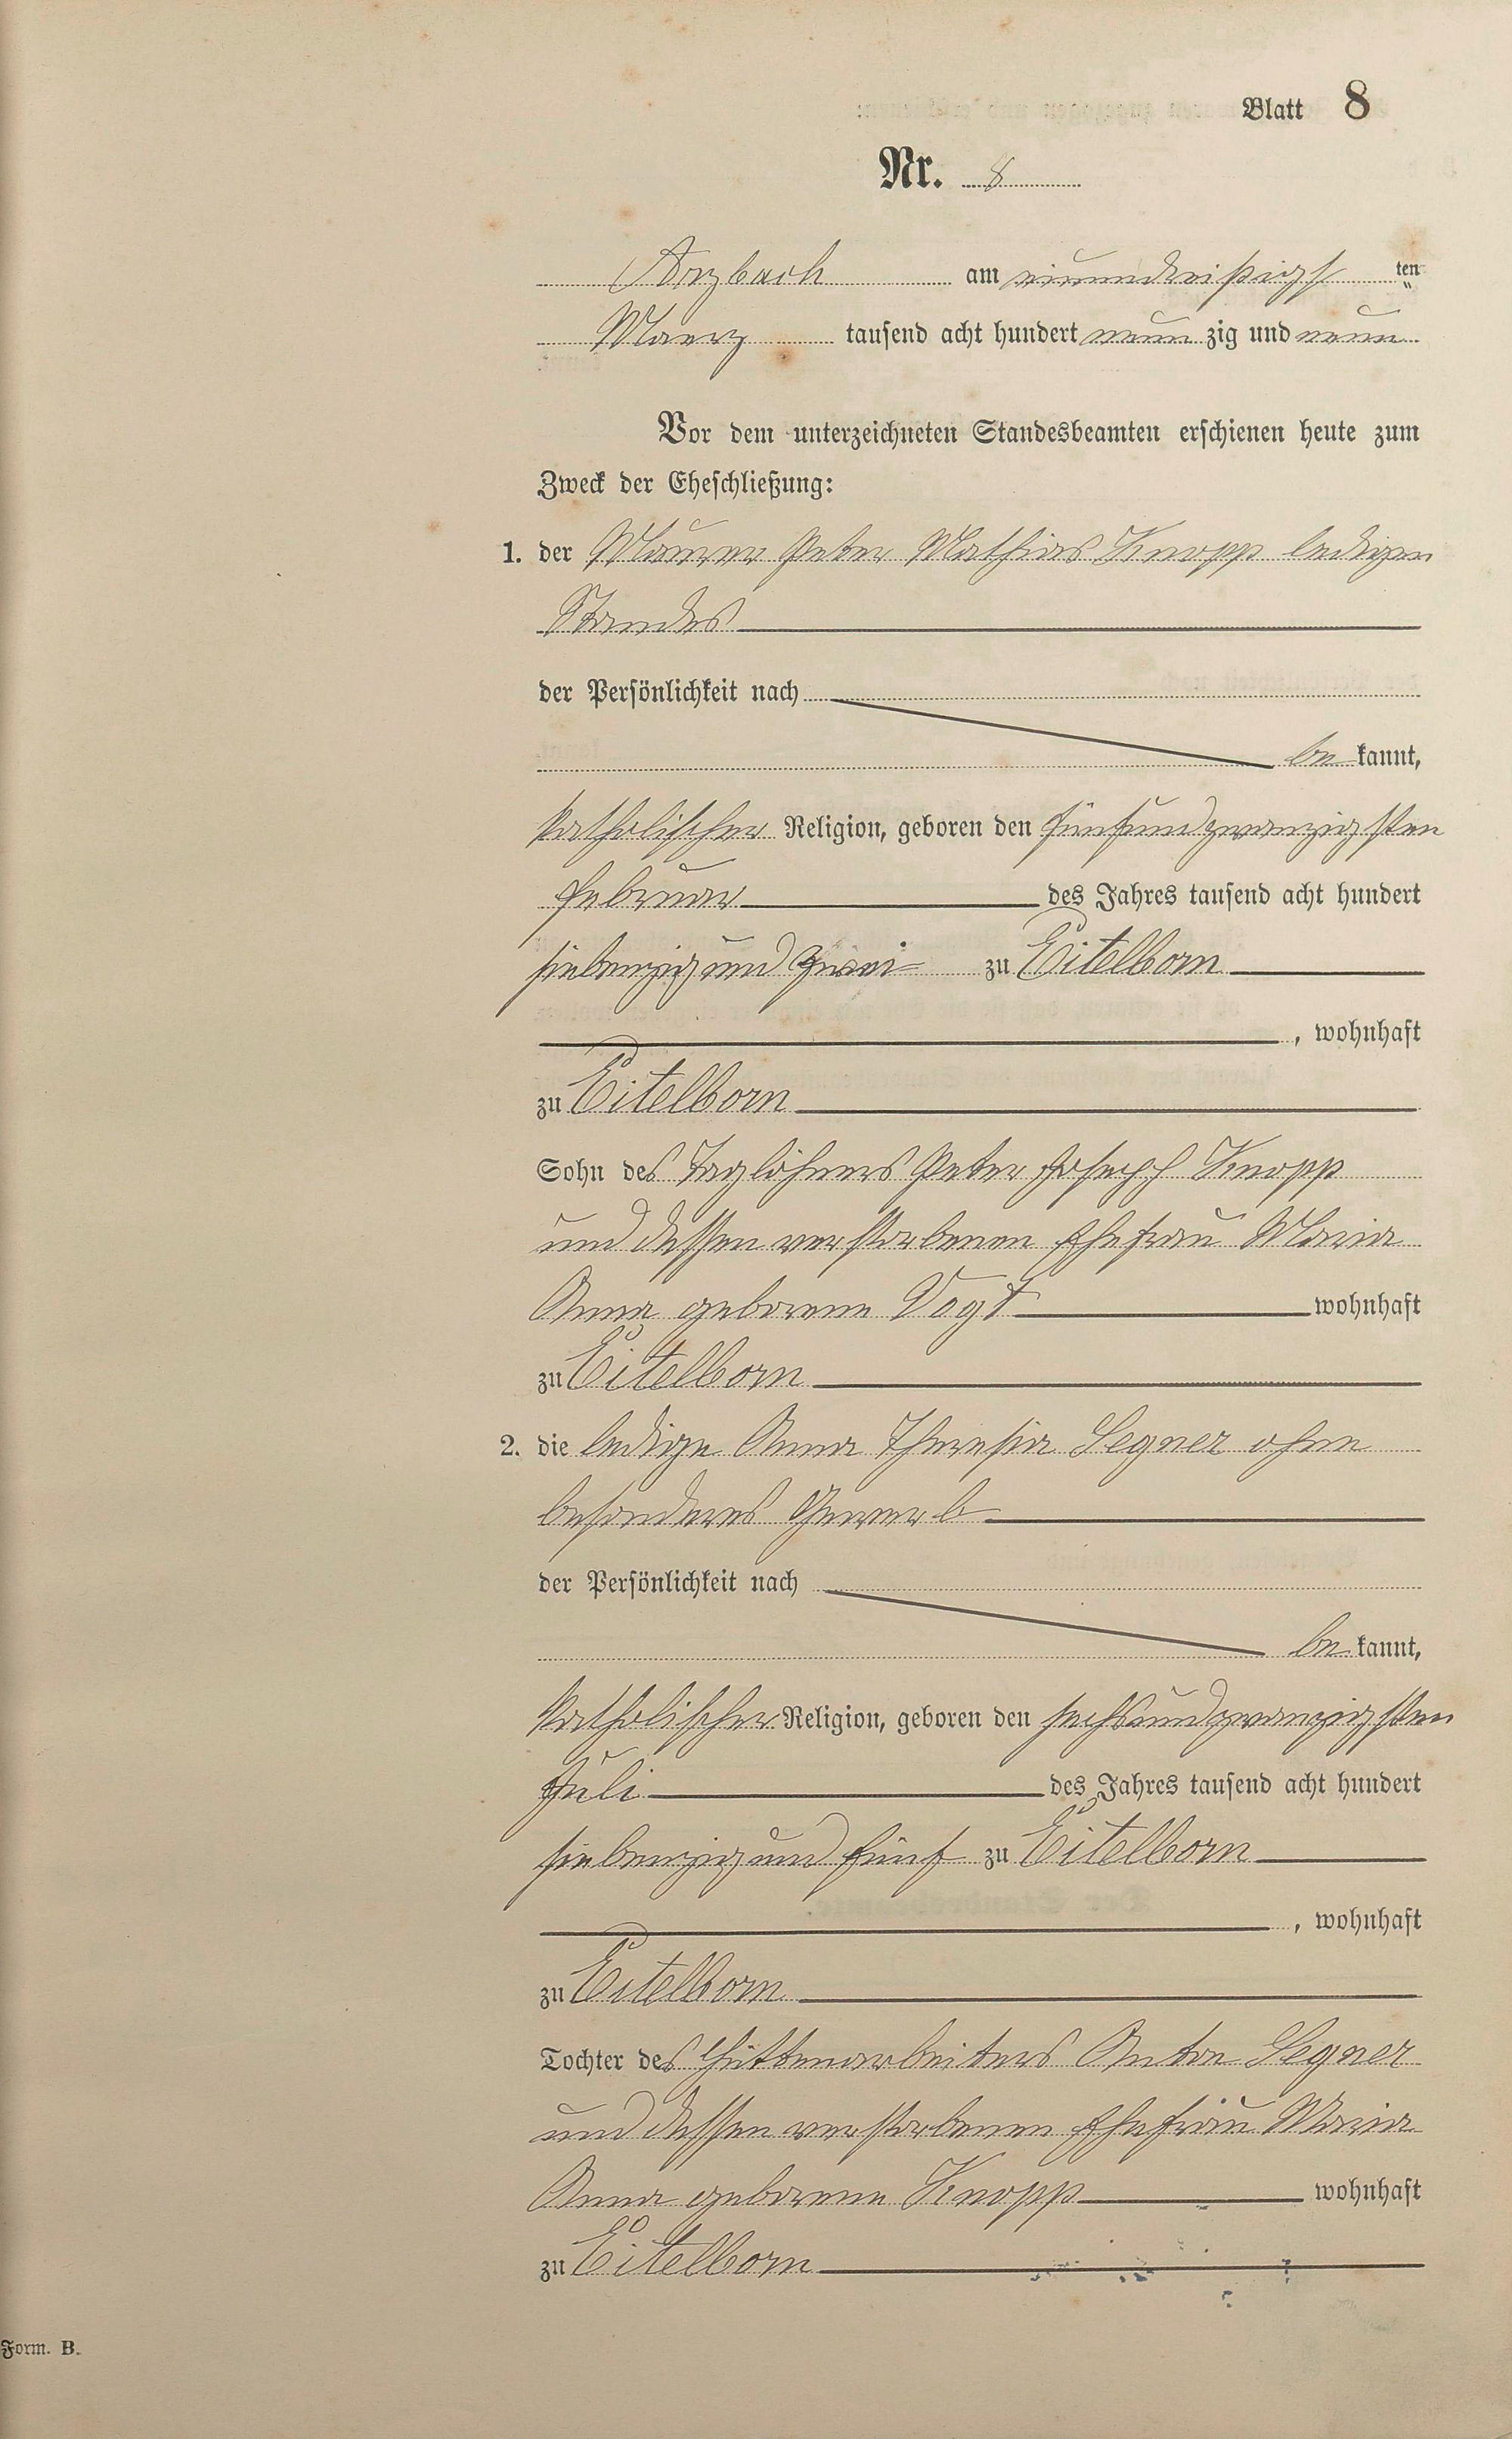 Blatt 8
Nr. 8
Arzbach am einunddreißigsten
Maerz tausend acht hundert neunzig und neun
Vor dem unterzeichneten Standesbeamten erschienen heute zum
Zweck der Eheschließung:
1. der Maurer Peter Mathias Knopp ledigen
Standes
der Persönlichkeit nach
bekannt,
katholischer Religion, geboren den fünfundzwanzigsten
Februar des Jahres tausend acht hundert
siebenzig und zwei zu Eitelborn
, wohnhaft
zu Eitelborn
Sohn des Taglöhners Peter Joseph Knopp
und dessen verstorbenen Ehefrau Maria
Anna geborene Vogt wohnhaft
zu Eitelborn
2. die ledige Anna Theresia Segner ohne
besonderes Gewerb
der Persönlichkeit nach
bekannt,
katholischer Religion, geboren den sechsundzwanzigsten
Juli des Jahres tausend acht hundert
siebenzig und fünf zu Eitelborn
, wohnhaft
zu Eitelborn
Tochter des Hüttenarbeiters Anton Segner
und dessen verstorbenen Ehefrau Maria
Anna geborene Knopp wohnhaft
zu Eitelborn
Form. B.